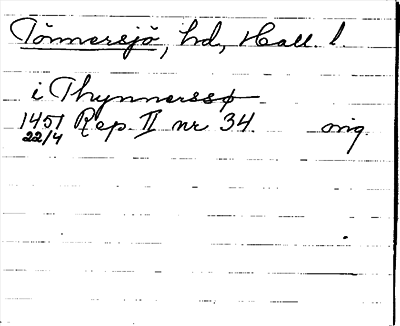 Tönnersjö, hd, Hall. l.
i Thynnerssø
1451 Rep. II nr 34. orig.
22/4